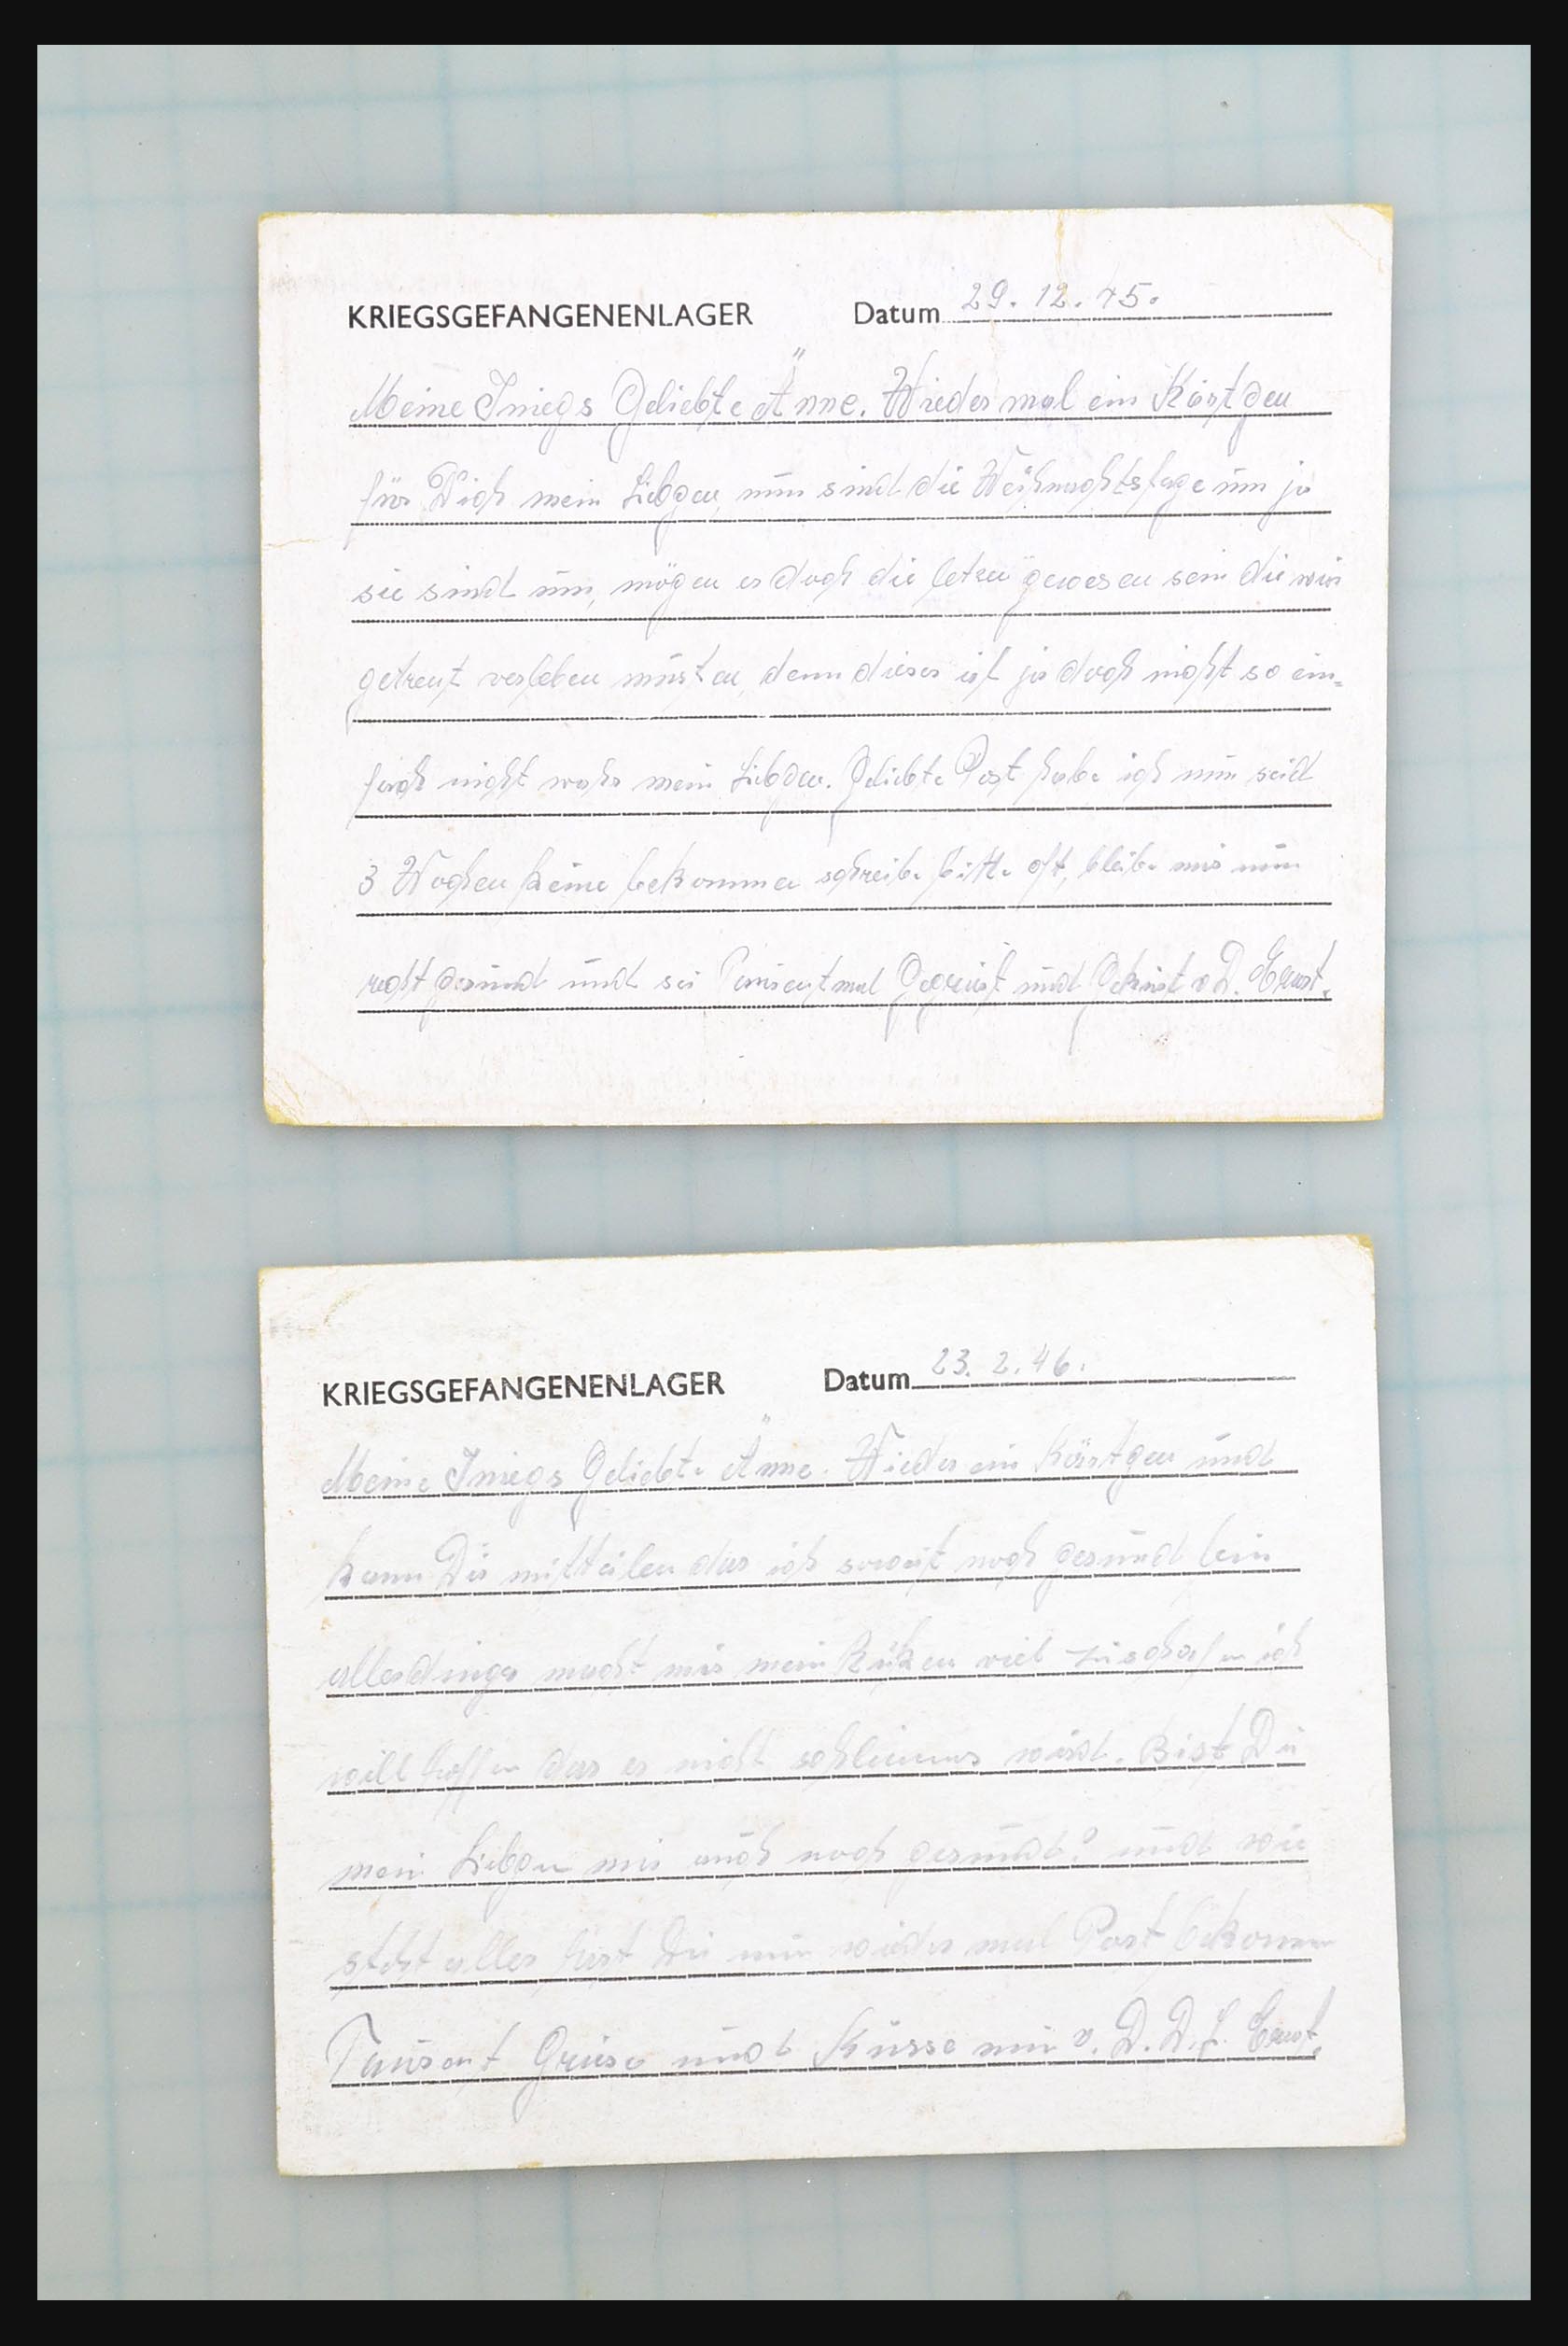 KRIEGSGEFANGENENLAGER Datum 29. 12. 45.
Meine Iniegs Geliebte Änne. Wieder mal ein Kärtgen
für Dich mein Liebgen, nun sind die Weihnachtstage um ja
sie sind um, mögen es doch die letzen gewesen sein die wir
getrent verleben musten, denn dieses ist ja doch nicht so ein-
fach nicht wahr mein Liebgen. Geliebte Post habe ich nun seid
3 Wochen keine bekommen schreibe bitte oft, bleibe mir nun
recht gesund und sei Tausentmal Gegrüst und Geküst v. D. Ernst.
KRIEGSGEFANGENENLAGER Datum 23. 2. 46.
Meine Iniegs Geliebte Änne. Wieder ein Kärtgen und
kann Dir mitteilen das ich soweit noch gesund bin
allerdings macht mir mein Rüken viel zu schafen ich
will hoffen das es nicht schlimmer wird. Bist Du
mein Liebgen mir auch noch gesund? und wie
steht alles hast Du nun wieder mal Post bekommen
Tausent Grüse und Küsse nun v. D. D. L. Ernst.